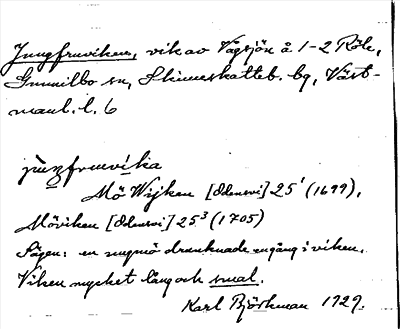 Jungfruviken, vik av Vågsjön å 1-2 Röle,
Gunnilbo sn, Skinnskatteb. bg, Väst-
manl. l. 6
jùŋfruvi̇ka
Mö Wijken [Odensvi] 25¹ (1699),
Möviken [Odensvi] 25³ (1705)
Sägen: en ungmö drunknade engång i viken.
Viken mycket lång och smal.
Karl Björkman 1929.